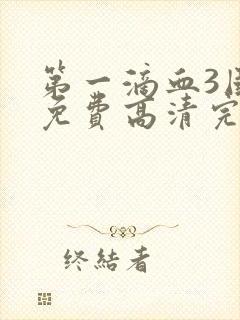 第一滴血3
免费高清完
终结者